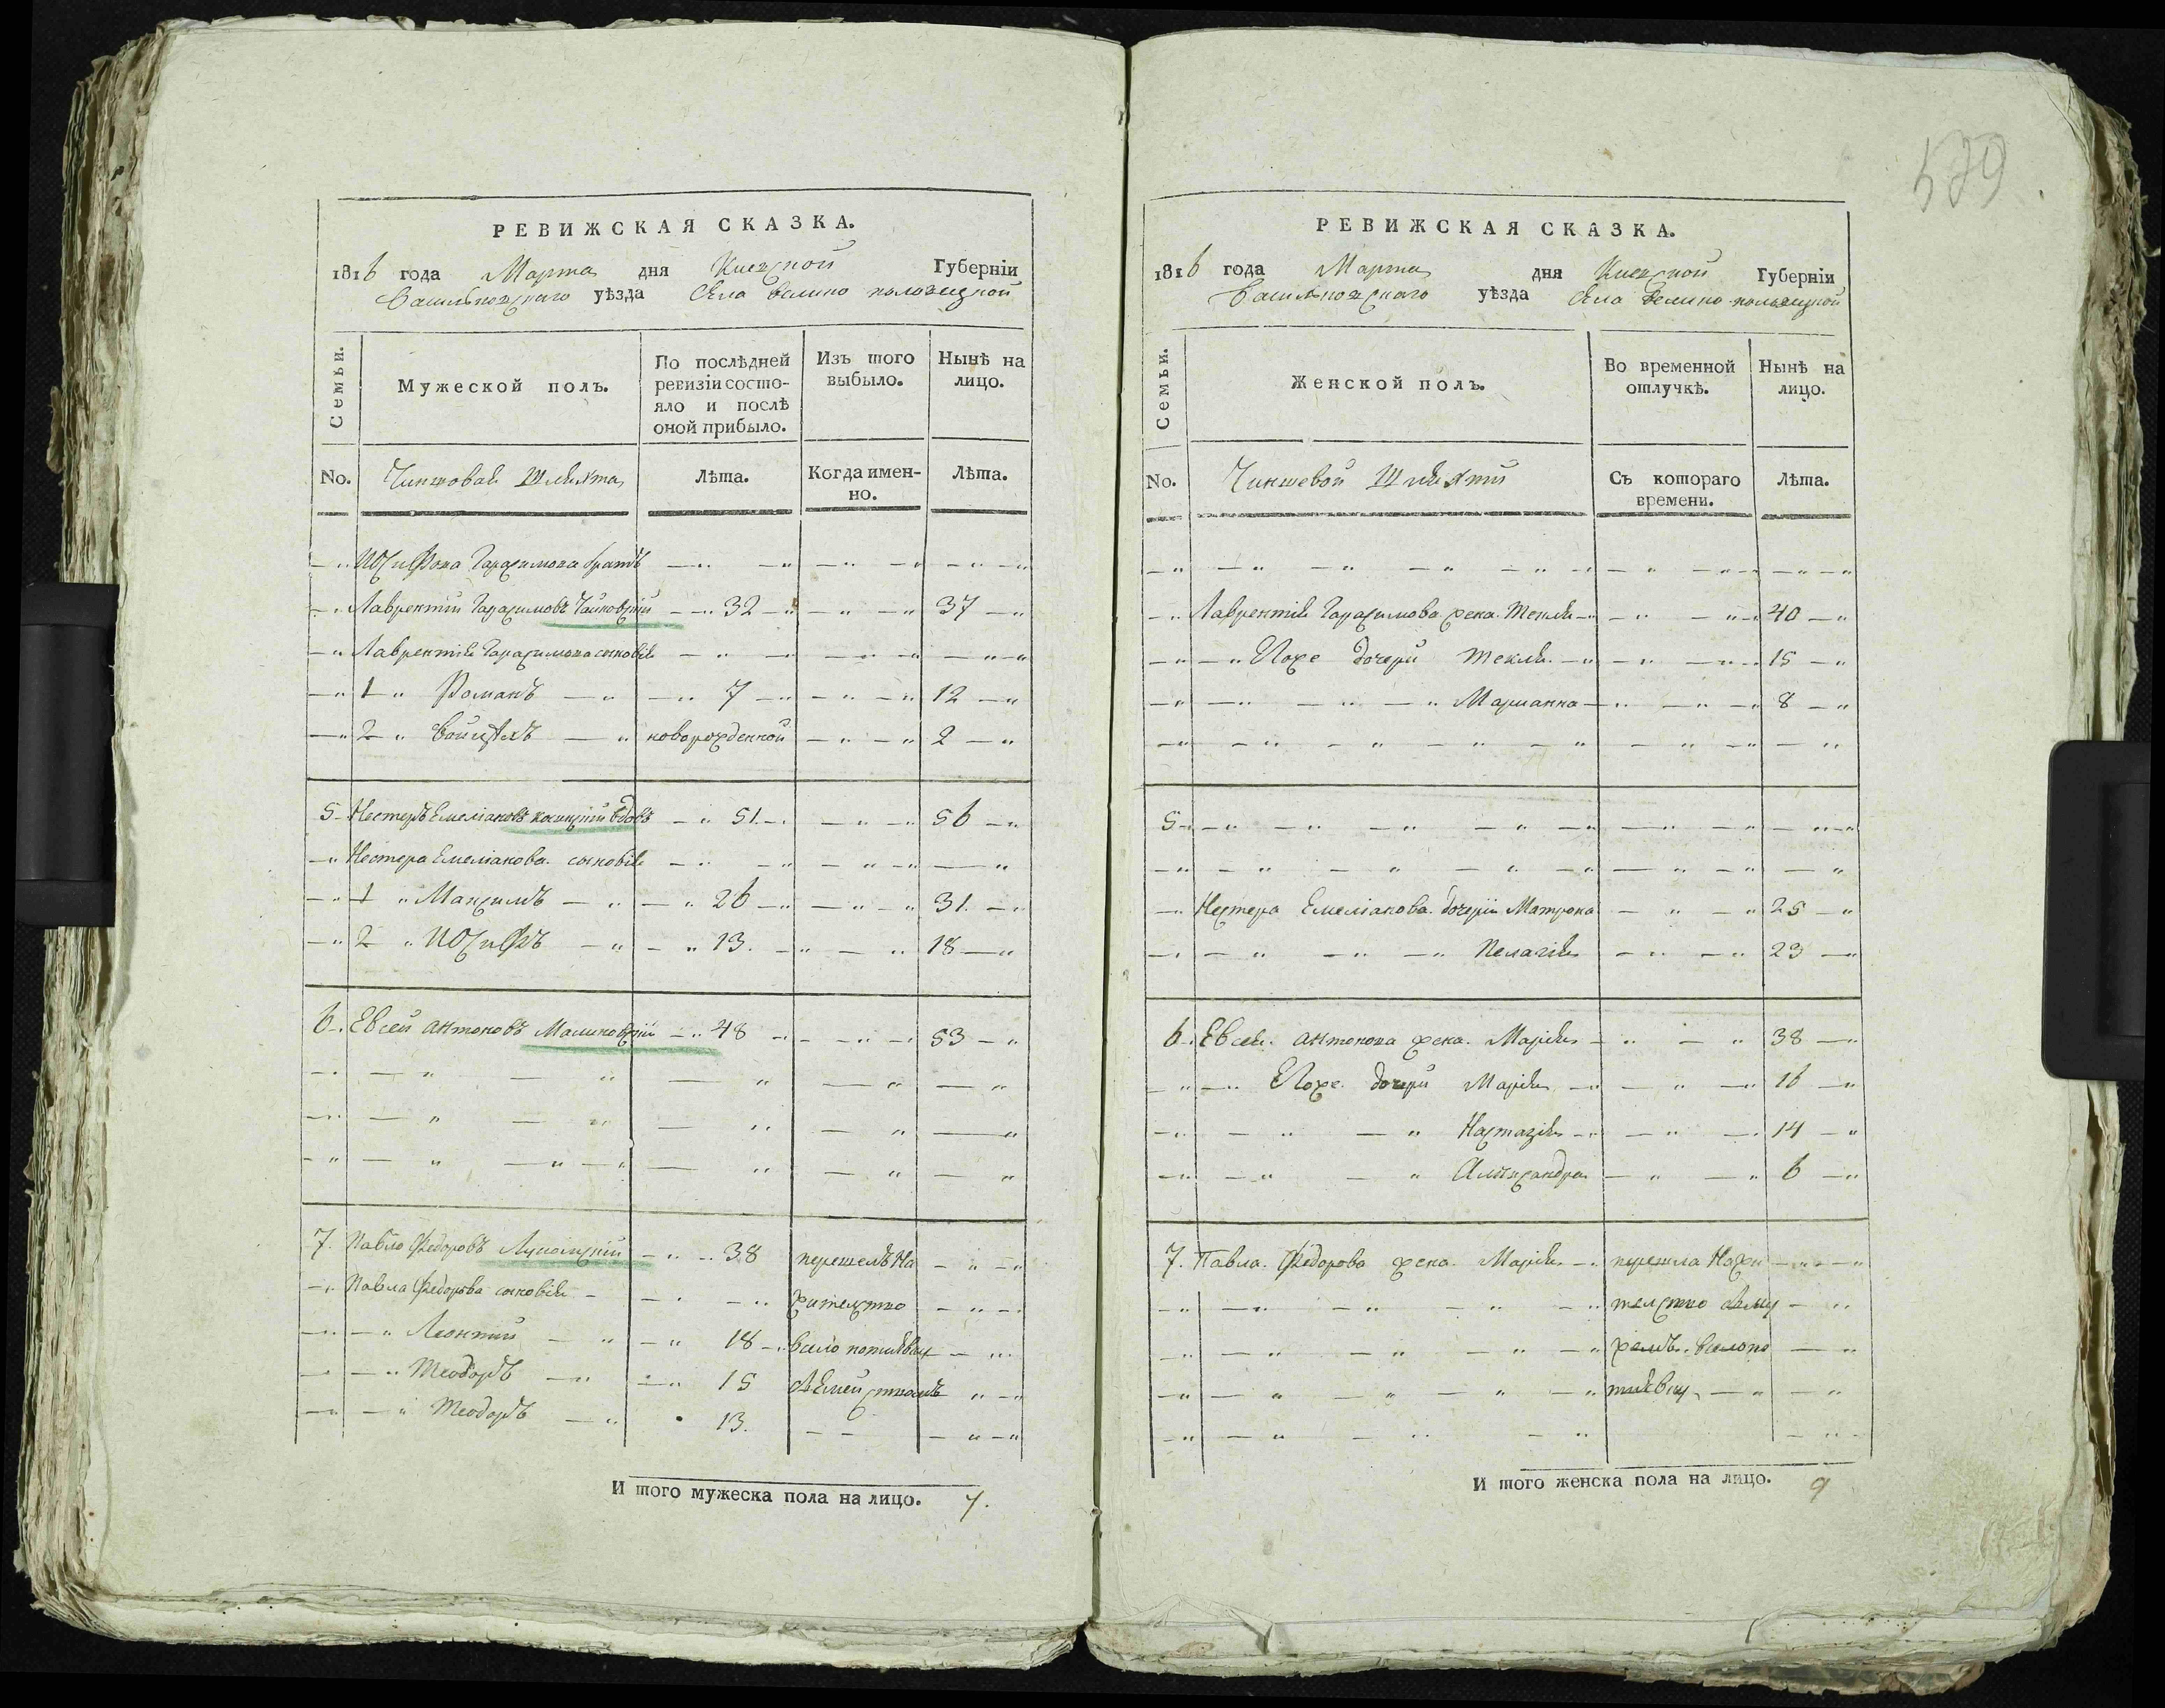 РЕВИЖСКАЯ СКАЗКА.
1816 года Марта дня Киевской Губерніи
Васильковскаго уѣзда Села Велико половецкой
Семьи.
Мужеской полъ.
По послѣдней ревизіи состо-
яло и послѣ
оной прибыло.
Изъ того выбыло.
Нынѣ на лицо.
No. Чиншовая Шляхта Лѣта. Когда имен-
но. Лѣта.
Иосифова Гарасимова братъ
Лаврентий Гарасимовъ Чайковский 32 37
Лаврентія Гарасимова сыновія
1 Романъ 7 12
2 Войцехъ новорожденной 2
5 Нестеръ Емеліановъ вдовъ 51 56
Нестера Емеліанова сыновія
1 Максимъ 26 31
2 Иосифъ 13 18
6 Евсей Антоновъ Малиновскій 48 53
7. Павло Федоровъ 38 перешелъ на
Павла Федорова сыновія жителство
Леонтий 18 в село
Теодоръ 15 семействомъ
Теодоръ 13
И того мужеска пола на лицо. 7.
579
РЕВИЖСКАЯ СКАЗКА.
1816 года Марта дня Киевской Губерніи
Васильковскаго уѣзда Села Велико половецкой
Семьи.
Женской полъ.
Во временной отлучкѣ.
Нынѣ на лицо.
No. Чиншевой Шляхты Съ котораго
времени. Лѣта.
Лаврентія Гарасимова жена Текля 40
Ево же дочери Текля 15
Марианна 8
5
Нестера Емеліанова дочери Матрона 25
Пелагія 23
6 Евсея Антонова жена Марія 38
Ево же дочери Марія 16
Настазія 14
Александра 6
7. Павла Федорова жена Марія перешла на жи
телство с му
жемъ в село по
И того женска пола на лицо. 9